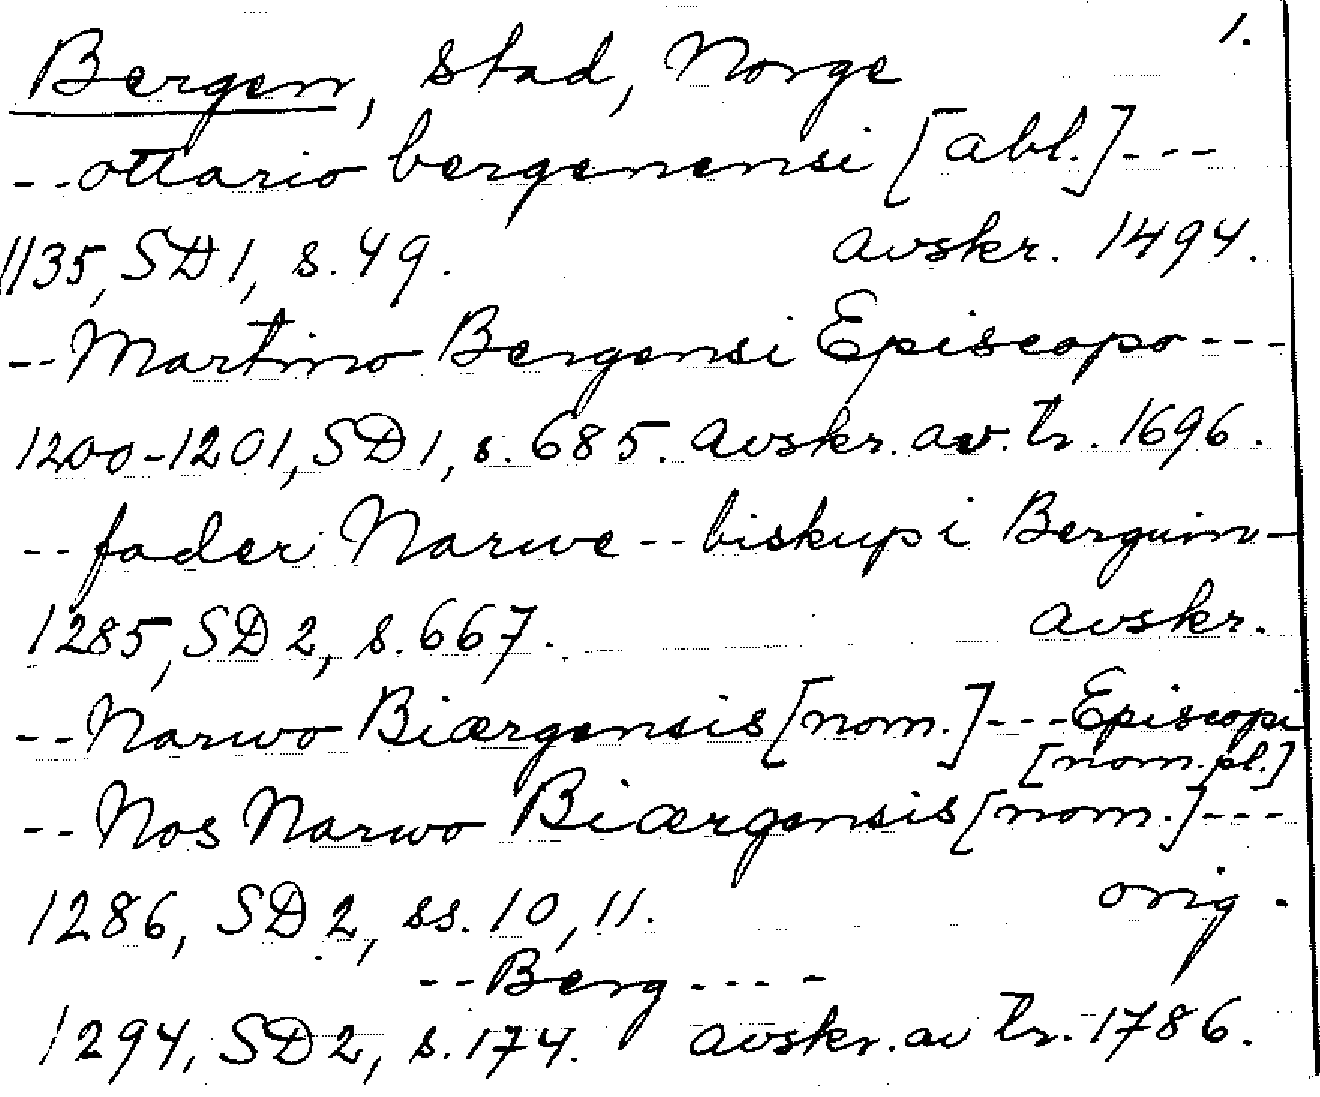 1.
Bergen, stad, Norge
--ottario bergenensi [abl.]---
1135, SD1, s.49. avskr. 1494.
--Martino Bergensi Episcopo---
1200-1201, SD1, s.685. avskr. av. tr. 1696.
--fader Narwe--biskup i Berguin-
1285, SD2, s.667. avskr.
--Narwo Biærgensis [nom.]---Episcopi
[nom.pl.]
--Nos Narwo Biærgensis [nom.]---
1286, SD2, ss.10, 11. orig.
--Berg----
1294, SD2, s.174. avskr. av tr. 1786.